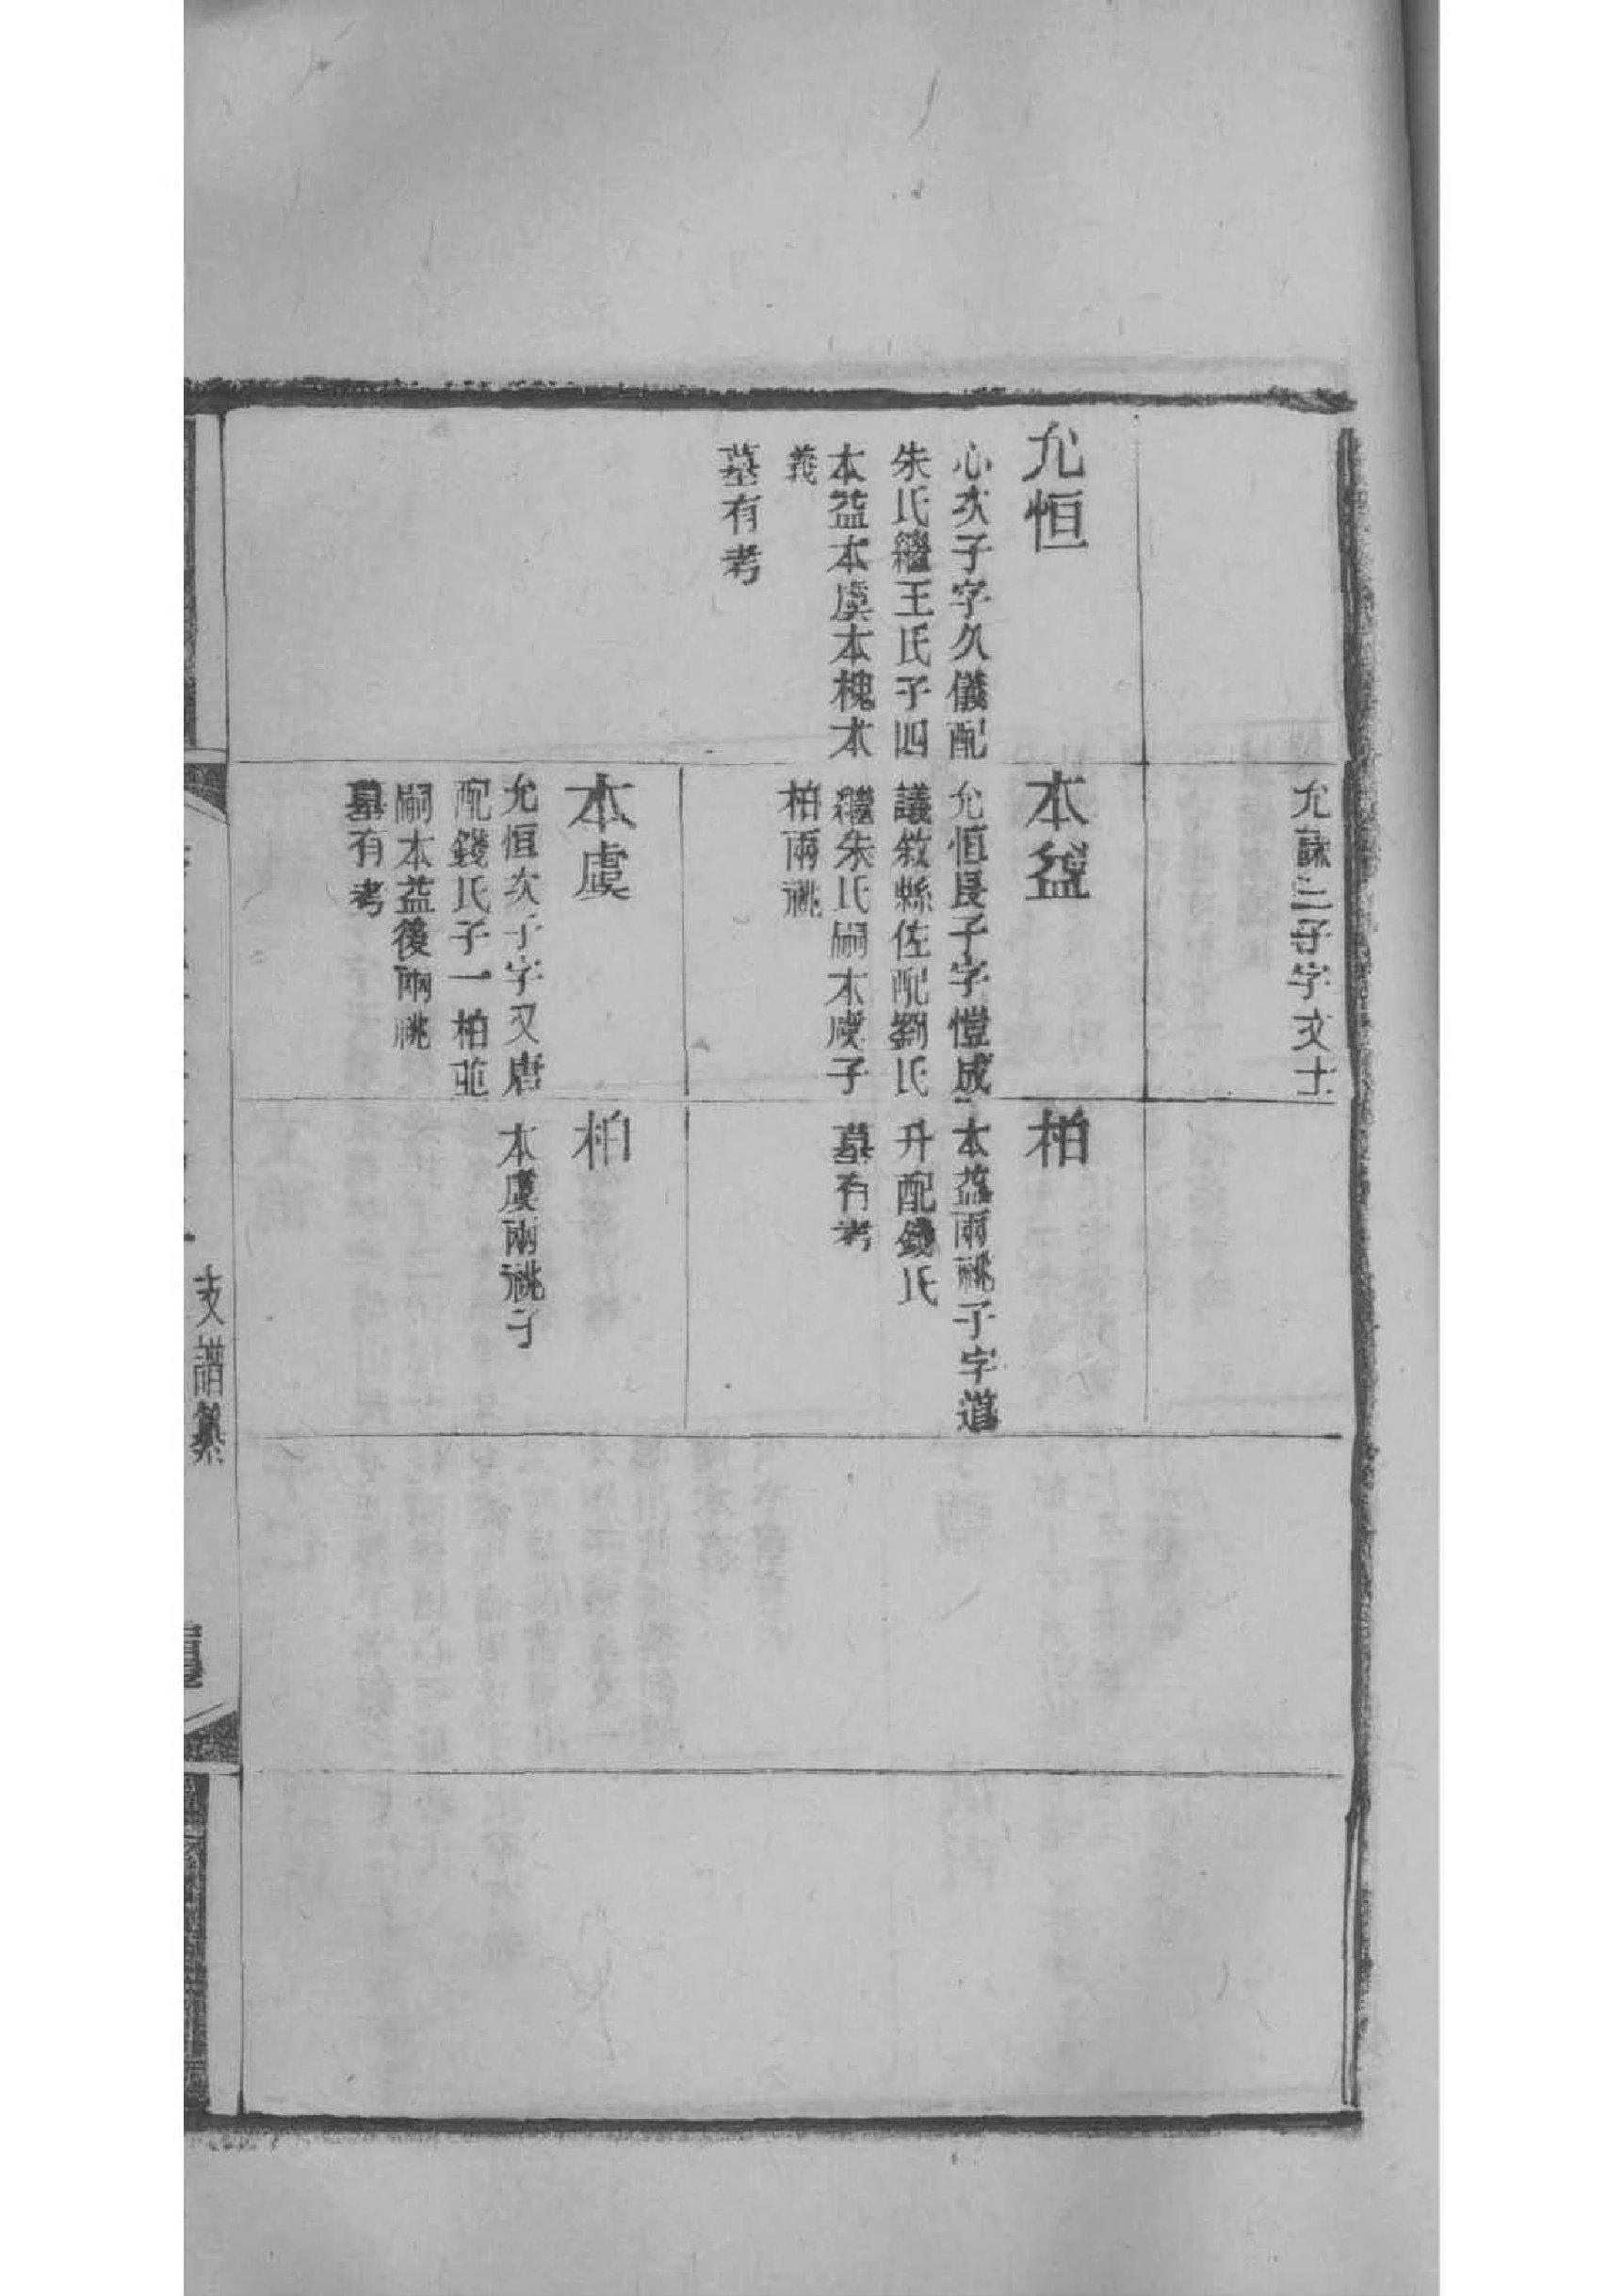 允誠三子字文士
允恒
心次子字久儀配
朱氏繼王氏子四
本益本虞本槐本
義
墓有考
本益
允恒長子字愷成
議敘縣佐配劉氏
繼朱氏嗣本虞子
柏兩祧
柏
本益兩祧子字道
升配錢氏
墓有考
本虞
允恒次子字又唐
配錢氏子一柏並
嗣本益後兩祧
墓有考
柏
本虞兩祧子
支譜纂